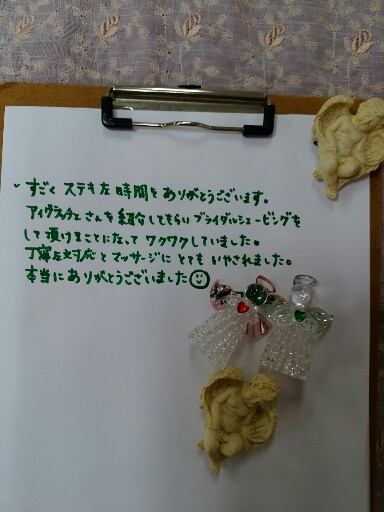 すごく ステキな 時間を ありがとうございます。
さんを 紹介してもらい ブライダルシェービングを
して頂けることになって ワクワクしていました。
丁寧な対応と マッサージに とても いやされました。
本当に ありがとうございました☺